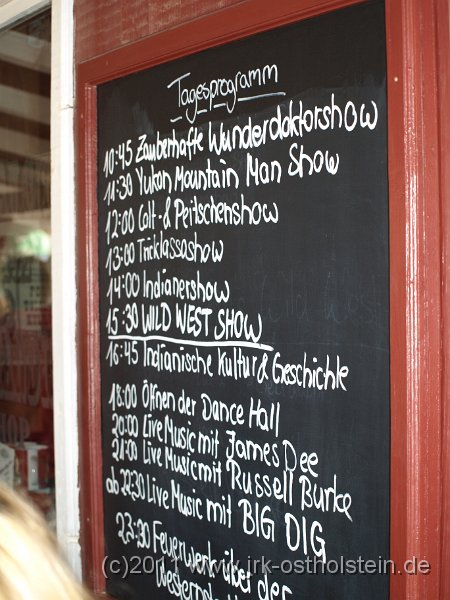 Tagesprogramm
10:45 Zauberhafte Wunderdoktorshow
11:30 Yukon Mountain Man Show
12:00 Colt- & Peitschenshow
13:00 Tricklassoshow
14:00 Indianershow
15:30 WILD WEST SHOW
16:45 Indianische Kultur & Geschichte
18:00 Öffnen der Dance Hall
20:00 Live Music mit James Dee
21:00 Live Music mit Russell Burke
ab 22:30 Live Music mit BIG DIG
23:30 Feuerwerk über der
(c)2011 www.jrk-ostholstein.de